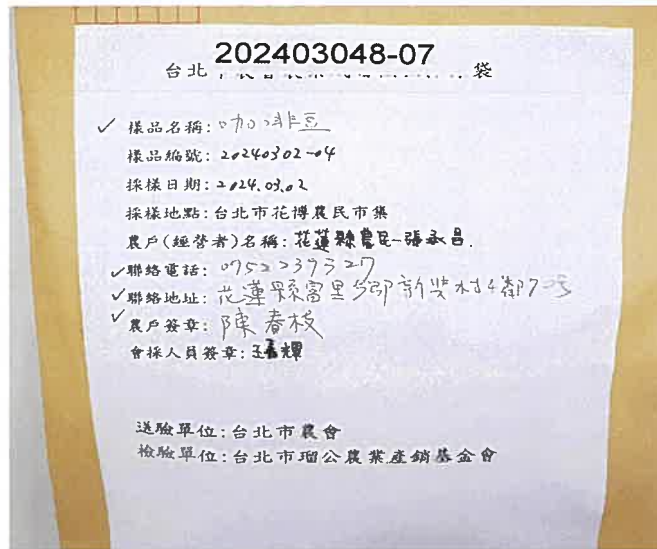 202403048-07
台北 袋
✓ 樣品名稱: 咖啡豆
樣品編號: 20240302-04
採樣日期: 2024.03.02
採樣地點: 台北市花博農民市集
農戶(經營者)名稱: 花蓮縣農民-張永昌.
✓ 聯絡電話: 0952239327
✓ 聯絡地址: 花蓮縣富里鄉新興村4鄰7號
✓ 農戶簽章: 陳春枝
會採人員簽章: 輝
送驗單位: 台北市農會
檢驗單位: 台北市瑠公農業產銷基金會